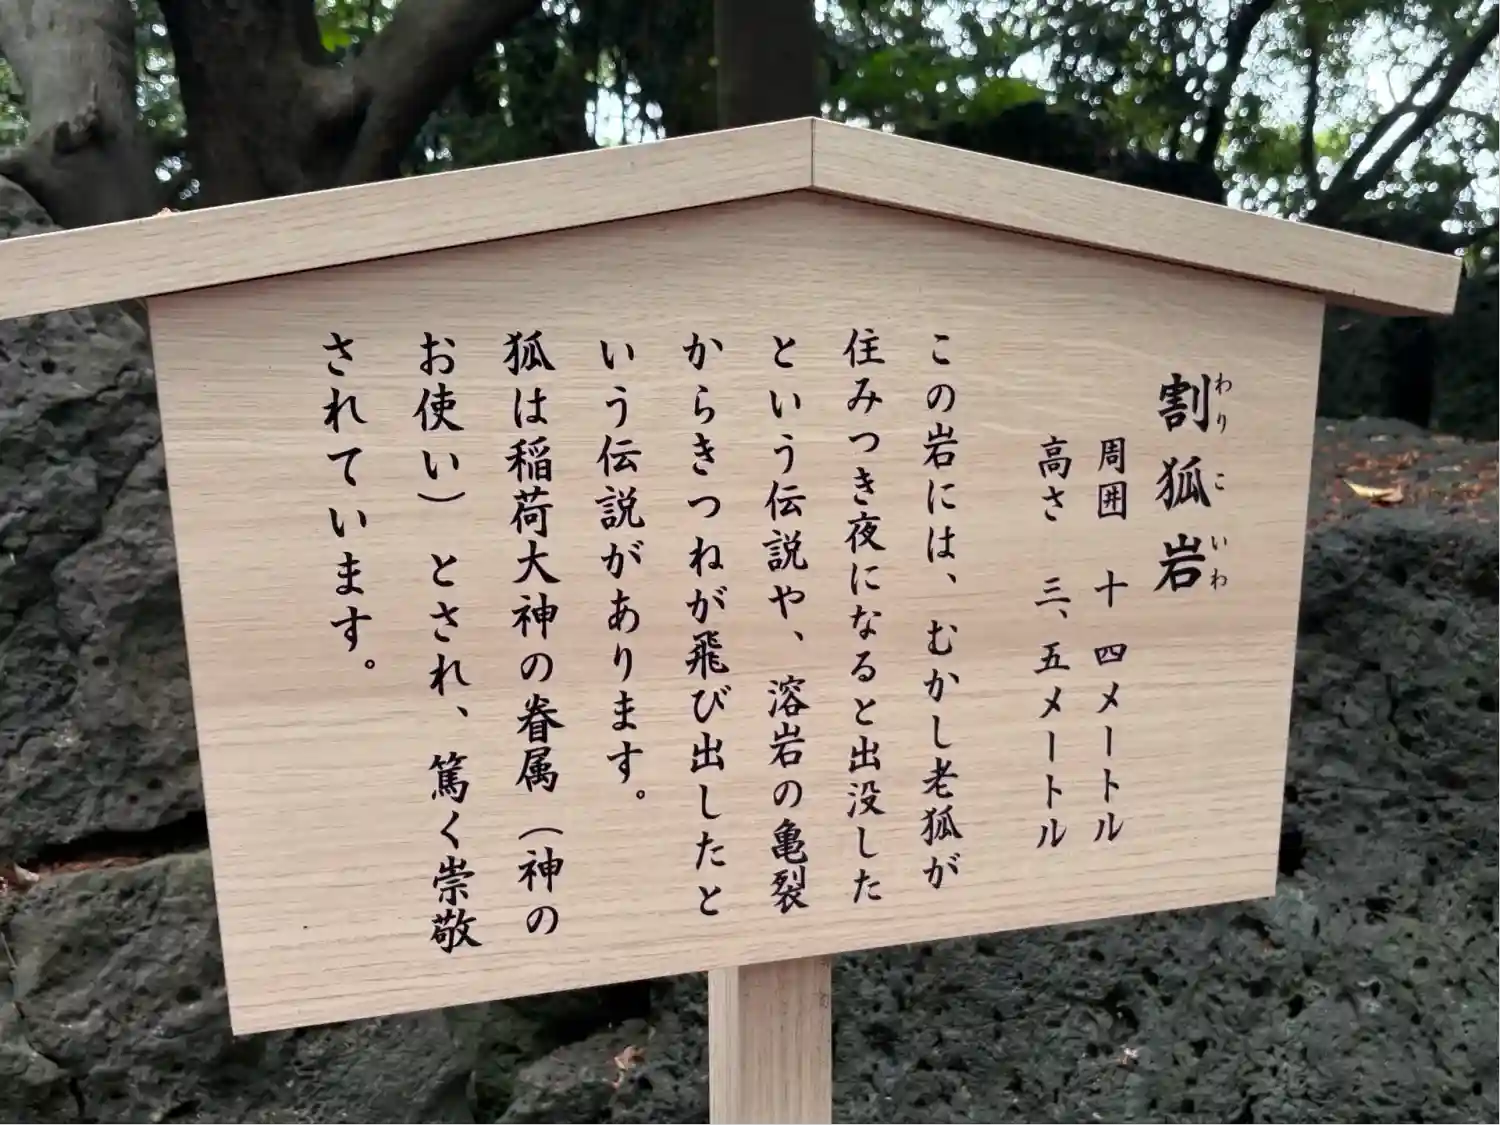 割狐岩
わりこいわ
周囲 十四メートル
高さ 三、五メートル
この岩には、むかし老狐が
住みつき夜になると出没した
という伝説や、溶岩の亀裂
からきつねが飛び出したと
いう伝説があります。
狐は稲荷大神の眷属（神の
お使い）とされ、篤く崇敬
されています。